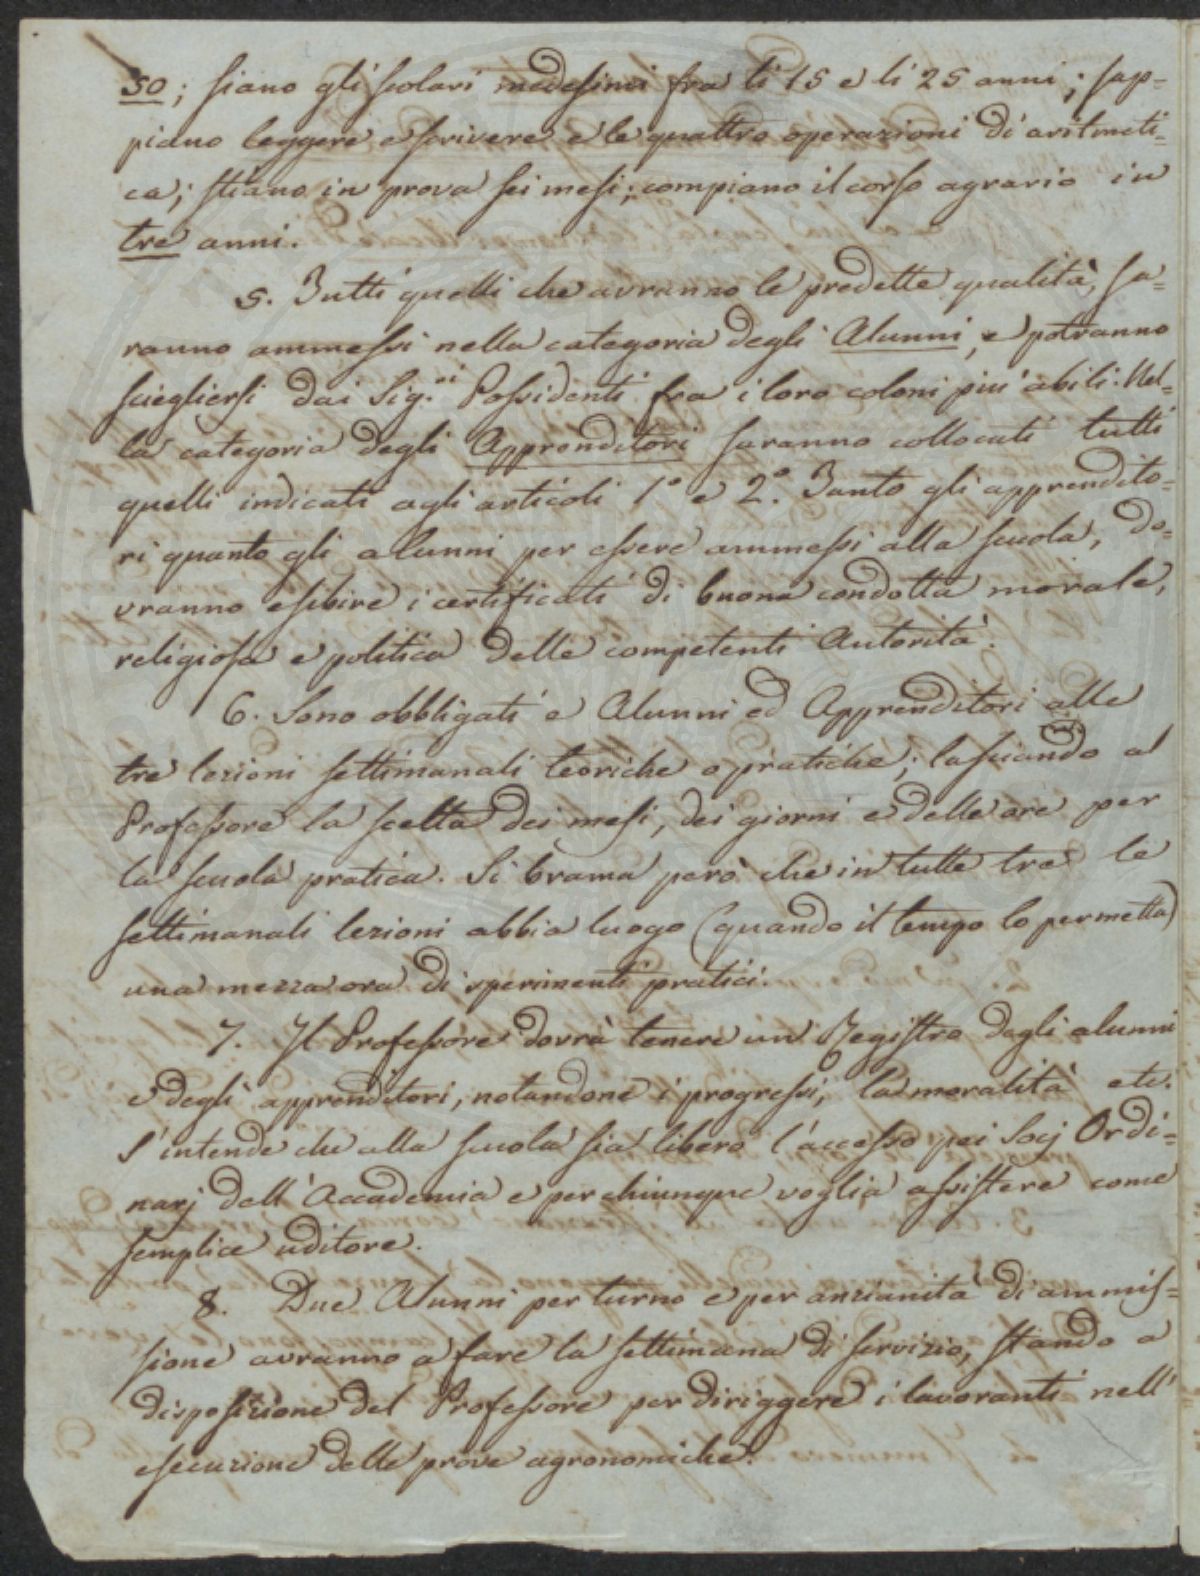 50; siano gli scolari medesimi fra li 15 e li 25 anni; sap=
piano leggere e scrivere e le quattro operazioni di aritmeti=
ca; stiano in prova sei mesi; compiano il corso agrario in
tre anni.
5. Tutti quelli che avranno le predette qualità, sa=
ranno ammessi nella categoria degli Alunni, e potranno
sciegliersi dai Sig.ri Possidenti fra i loro coloni più abili. Nel=
la categoria degli Apprenditori saranno collocati tutti
quelli indicati agli articoli 1.° e 2.° Tanto gli apprendito=
ri quanto gli alunni per essere ammessi alla scuola, do=
vranno esibire i certificati di buona condotta morale,
religiosa e politica delle competenti Autorità.
6. Sono obbligati e Alunni ed Apprenditori alle
tre lezioni settimanali teoriche o pratiche; lasciando al
Professore la scelta dei mesi, dei giorni e delle ore per
la scuola pratica. Si brama però che in tutte tre le
settimanali lezioni abbia luogo (quando il tempo lo permetta)
una mezza ora di sperimenti pratici.
7. Il Professore dovrà tenere un Registro degli alunni
e degli apprenditori, notandone i progressi, la moralità etc.
S'intende che alla scuola sia libero l'accesso pei Socj Ordi=
narj dell'Accademia e per chiunque voglia assistere come
semplice uditore.
8. Due Alunni per turno e per anzianità di ammis=
sione avranno a fare la settimana di servizio, stando a
disposizione del Professore per diriggere i lavoranti nell'
esecuzione delle prove agronomiche.